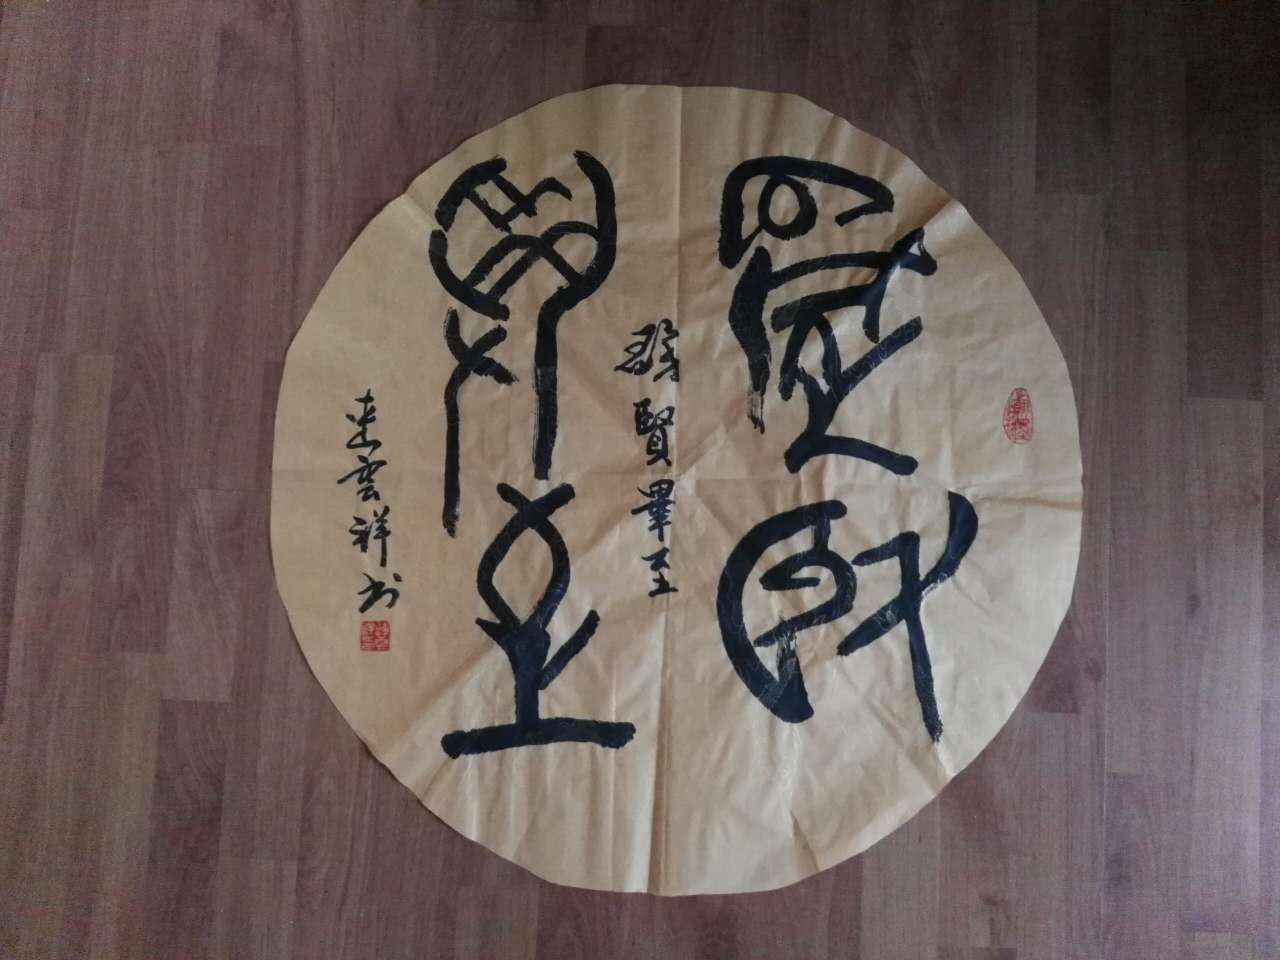 群賢
畢至
群賢畢至
連雲祥书